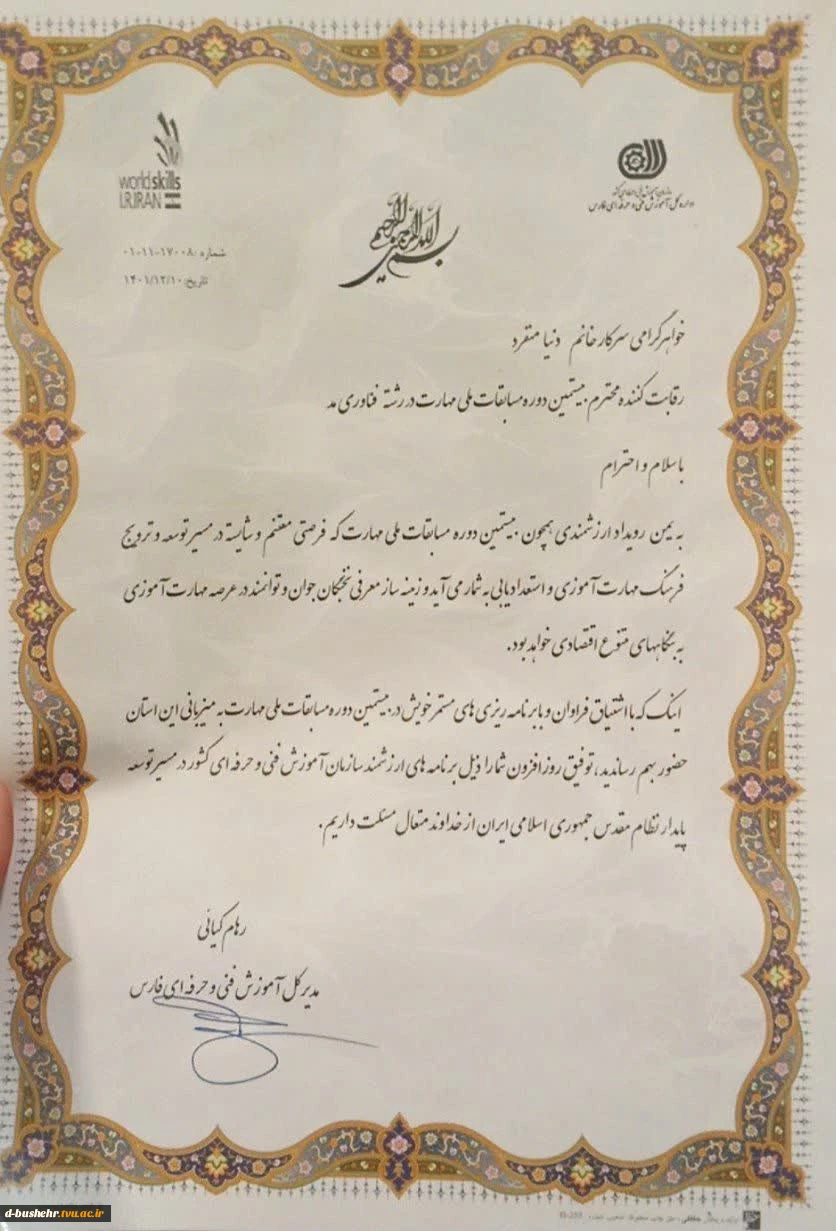 worldskills
I.R.IRAN
سازمان آموزش فنی و حرفه ای کشور
اداره کل آموزش فنی و حرفه ای فارس
بسم الله الرحمن الرحیم
شماره: ۰۱-۱۱-۱۷۰۰۸
تاریخ: ۱۴۰۱/۱۲/۱۰
خواهر گرامی سرکار خانم دنیا منفرد
رقابت کننده محترم بیستمین دوره مسابقات ملی مهارت در رشته فناوری مد
با سلام و احترام
به یمن رویداد ارزشمندی همچون بیستمین دوره مسابقات ملی مهارت که فرصتی مغتنم و شایسته در مسیر توسعه و ترویج
فرهنگ مهارت آموزی و استعدادیابی به شمار می آید و زمینه ساز معرفی نخبگان جوان و توانمند در عرصه مهارت آموزی
به بنگاههای متنوع اقتصادی خواهد بود.
اینک که با اشتیاق فراوان و با برنامه ریزی های مستمر خویش در بیستمین دوره مسابقات ملی مهارت به میزبانی این استان
حضور بهم رساندید، توفیق روز افزون شما را ذیل برنامه های ارزشمند سازمان آموزش فنی و حرفه ای کشور در مسیر توسعه
پایدار نظام مقدس جمهوری اسلامی ایران از خداوند متعال مسئلت داریم.
رهام کیانی
مدیر کل آموزش فنی و حرفه ای فارس
d-bushehr.tvu.ac.ir